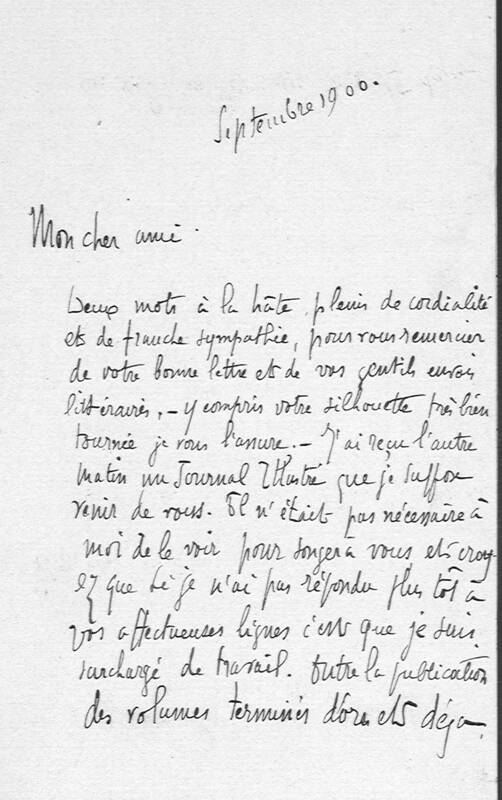 Septembre 1900.
Mon cher ami.
Deux mots à la hâte, pleins de cordialité
et de franche sympathie, pour vous remercier
de votre bonne lettre et de vos gentils envois
littéraires, - y compris votre silhouette très bien
tournée je vous l'assure. - J'ai reçu l'autre
matin un Journal Illustré que je suppose
venir de vous. Il n'était pas nécessaire à
moi de le voir pour songer à vous et croy-
ez que si je n'ai pas répondu plus tôt à
vos affectueuses lignes c'est que je suis
surchargé de travail. Outre la publication
des volumes terminés d'ores et déjà